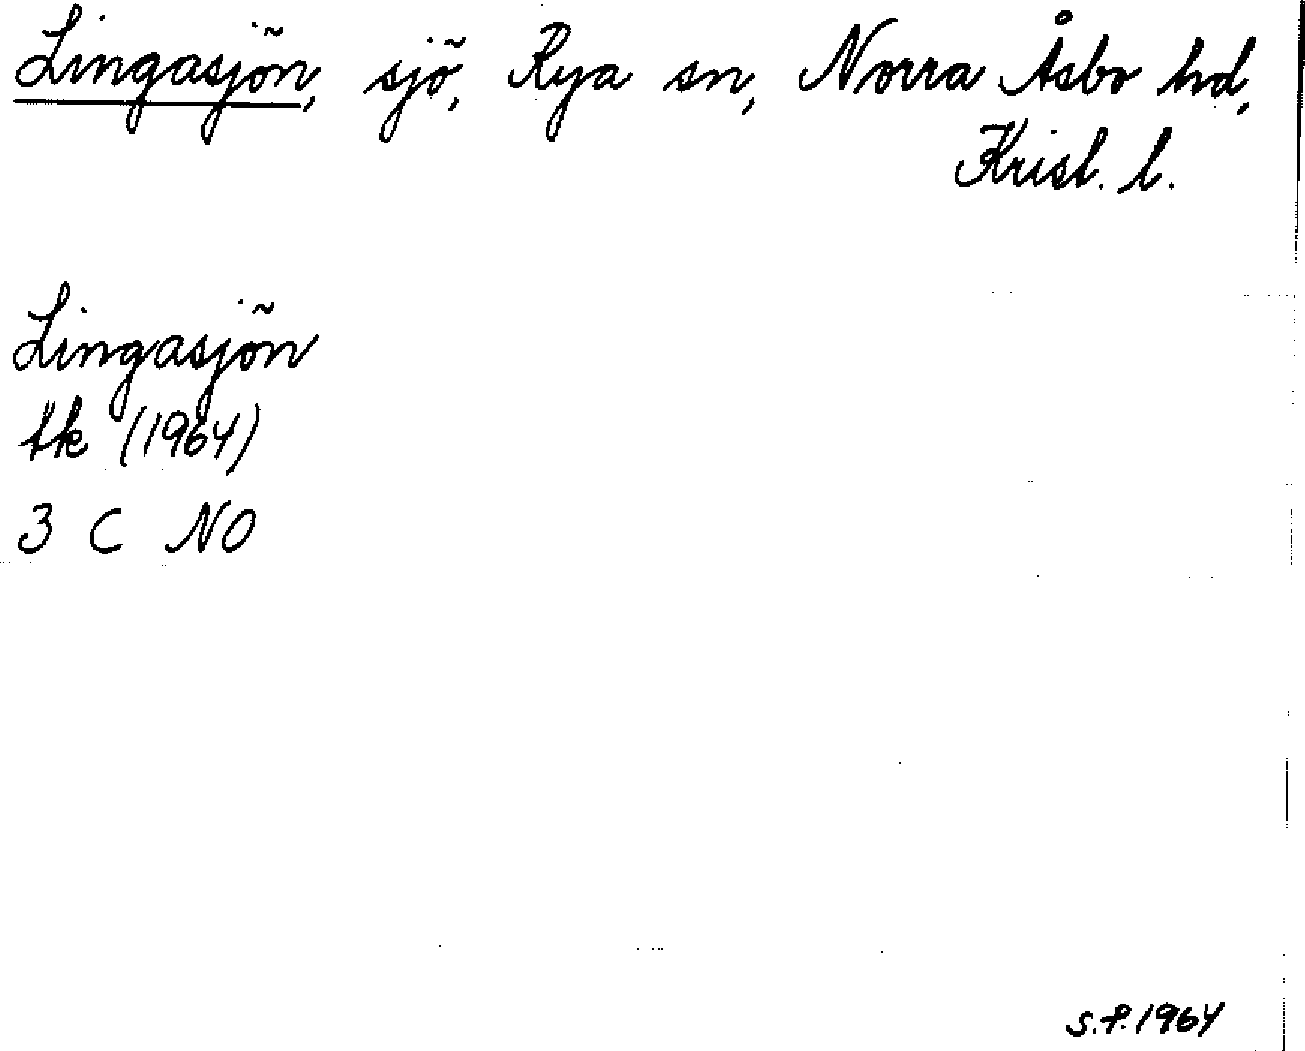 Lingasjön, sjö, Rya sn, Norra Åsbo hd,
Krist. l.
Lingasjön
tk (1964)
3 C NO
S.P. 1964